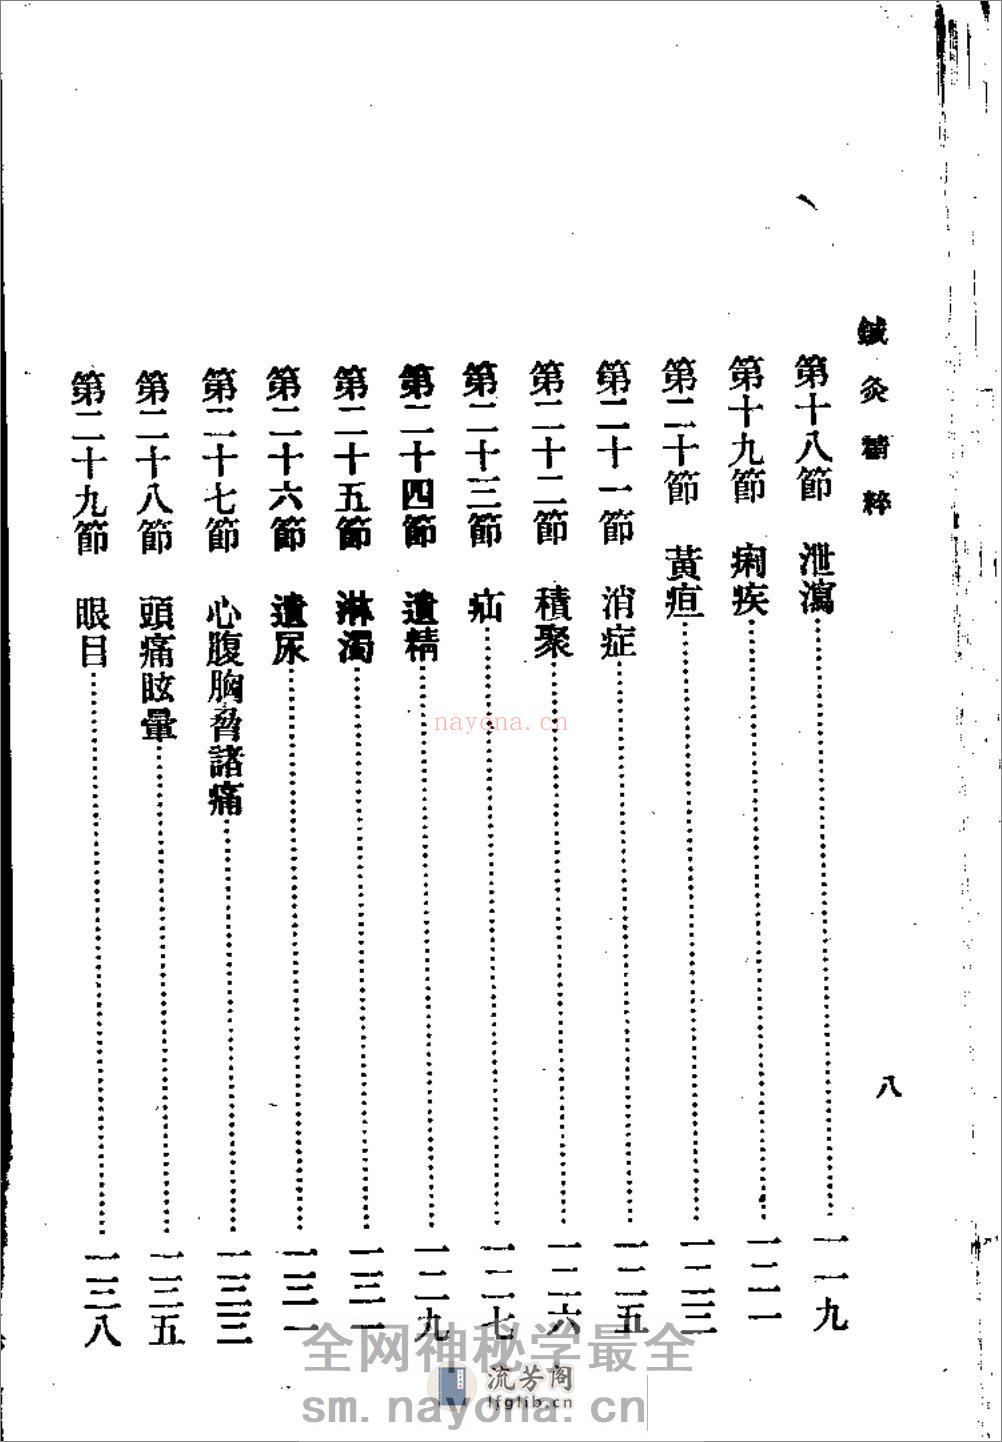 鍼灸精粹
八
第十八節 泄瀉 一一九
第十九節 痢疾 一二一
第二十節 黃疸 一二三
第二十一節 消症 一二五
第二十二節 積聚 一二六
第二十三節 疝 一二七
第二十四節 遺精 一二九
第二十五節 淋濁 一三一
第二十六節 遺尿 一三一
第二十七節 心腹胸脅諸痛 一三三
第二十八節 頭痛眩暈 一三五
第二十九節 眼目 一三八
nayona.cn
全网神秘学最全
流芳阁
lfglib.cn
sm.nayona.cn